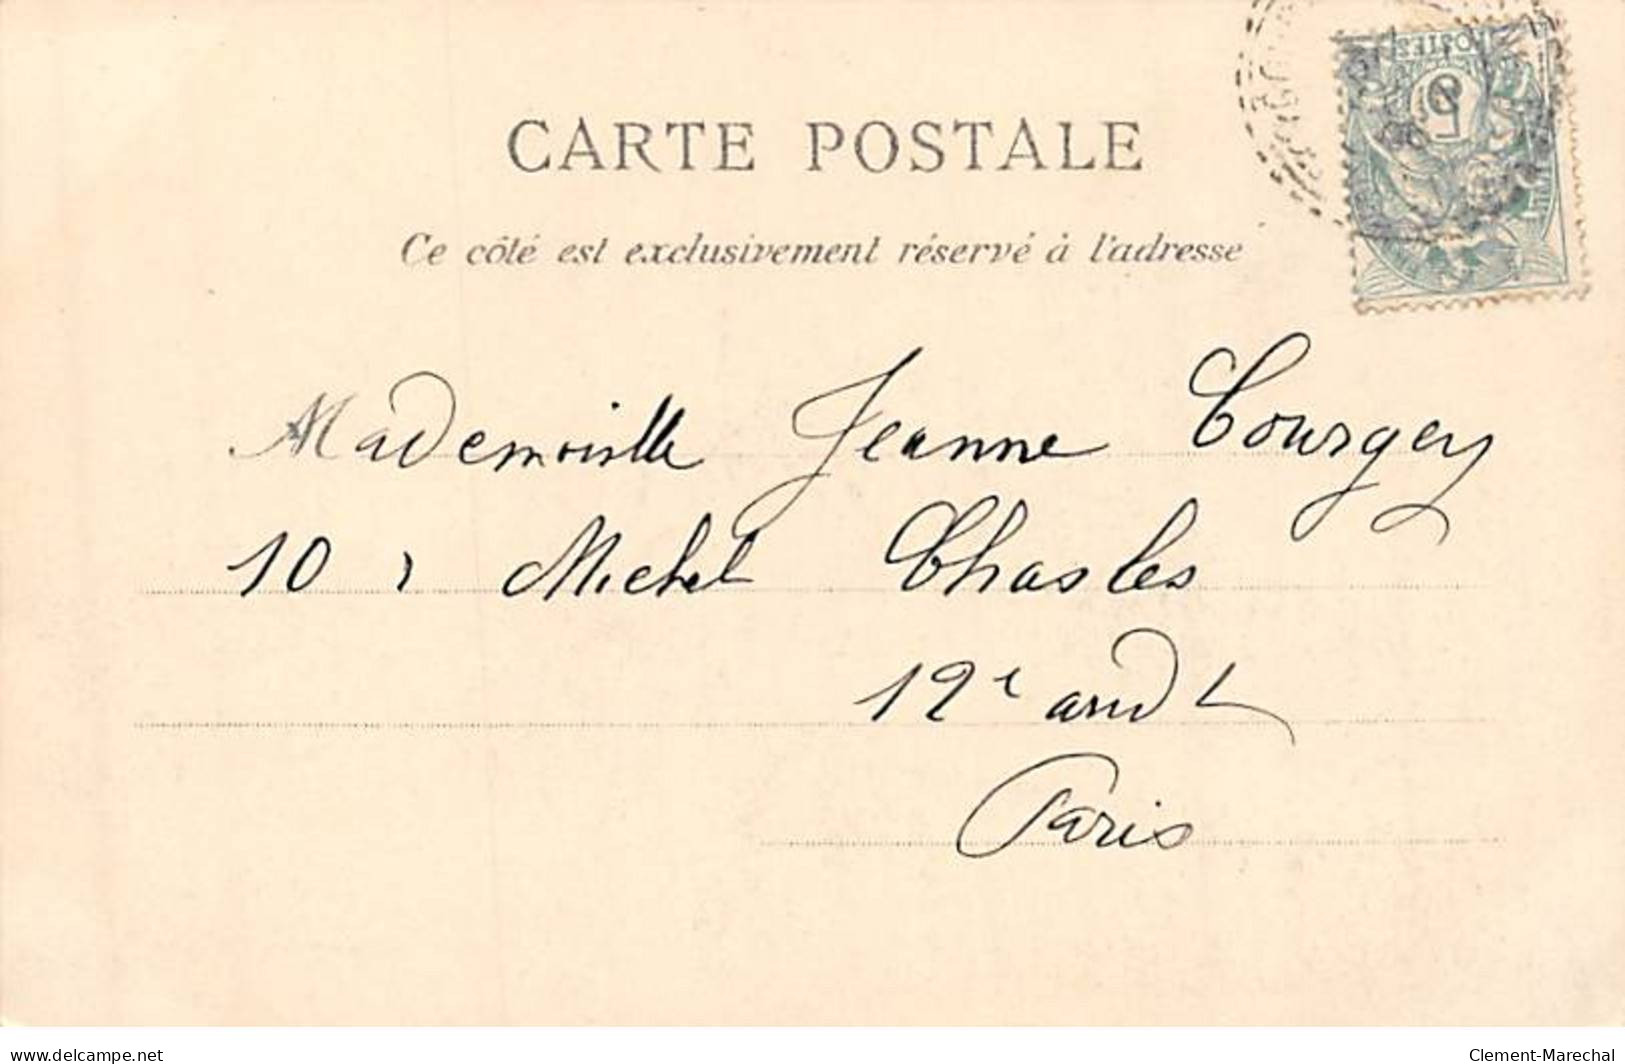 CARTE POSTALE
Ce côté est exclusivement réservé à l'adresse
POSTES
5
Mademoiselle Jeanne Courgey
10 r Michel Chasles
12e arrdt
Paris
delcampe.net
Clement-Marechal